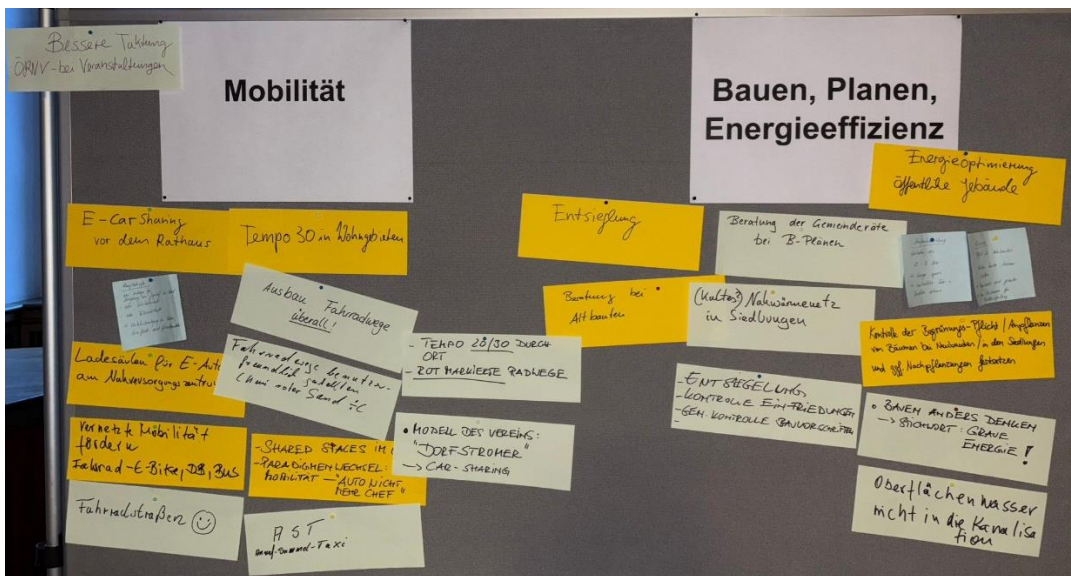 Bessere Taktung
ÖRNV-bei Veranstaltungen
Mobilität
E-Car Sharing
vor dem Rathaus
Tempo 30 in Wohngebieten
Ausbau Fahrradwege
überall!
Ladesäulen für E-Auto
am Nahversorgungszentrum
Fahrradwege benutzer-
freundlich gestalten
roter Sand
- TEMPO 28/30 DURCH
ORT
- ROT MARKIERTE RADWEGE
Vernetzte Mobilität
fördern
Fahrrad-E-Bike, DB, Bus
- SHARED SPACES IM
- PARADIGMENWECHSEL:
MOBILITÄT – "AUTO NICHT
MEHR CHEF"
• MODELL DES VEREINS:
"DORFSTROMER"
→ CAR-SHARING
Fahrradstraßen ☺
AST
Anruf-Sammel-Taxi
Bauen, Planen,
Energieeffizienz
Energieoptimierung
öffentliche Gebäude
Entsieglung
Beratung der Gemeinderäte
bei B-Plänen
Beratung bei
Altbauten
(Kaltes?) Nahwärmenetz
in Siedlungen
Kontrolle der Begrünungs-Pflicht / Anpflanzen
von Bäumen bei Neubauten / in den Siedlungen
und ggf. Nachpflanzungen festsetzen
- ENTSIEGELUNG
- KONTROLLE EINFRIEDUNGEN
- GEN. KONTROLLE BAUVORSCHRIFTEN
-
• BAUEN ANDERS DENKEN
→ STICHWORT: GRAUE
ENERGIE!
Oberflächenwasser
nicht in die Kanalisa
tion